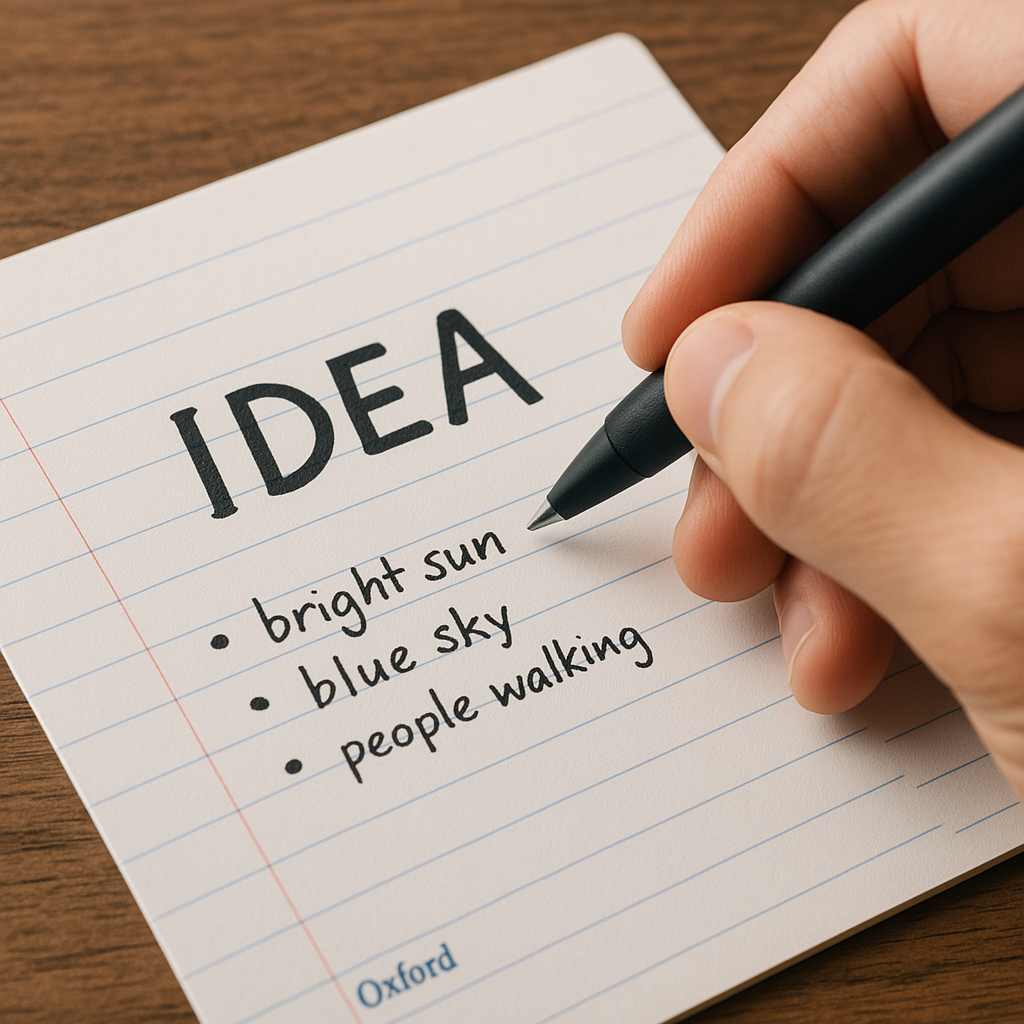 IDEA
• bright sun
• blue sky
• people walking
Oxford